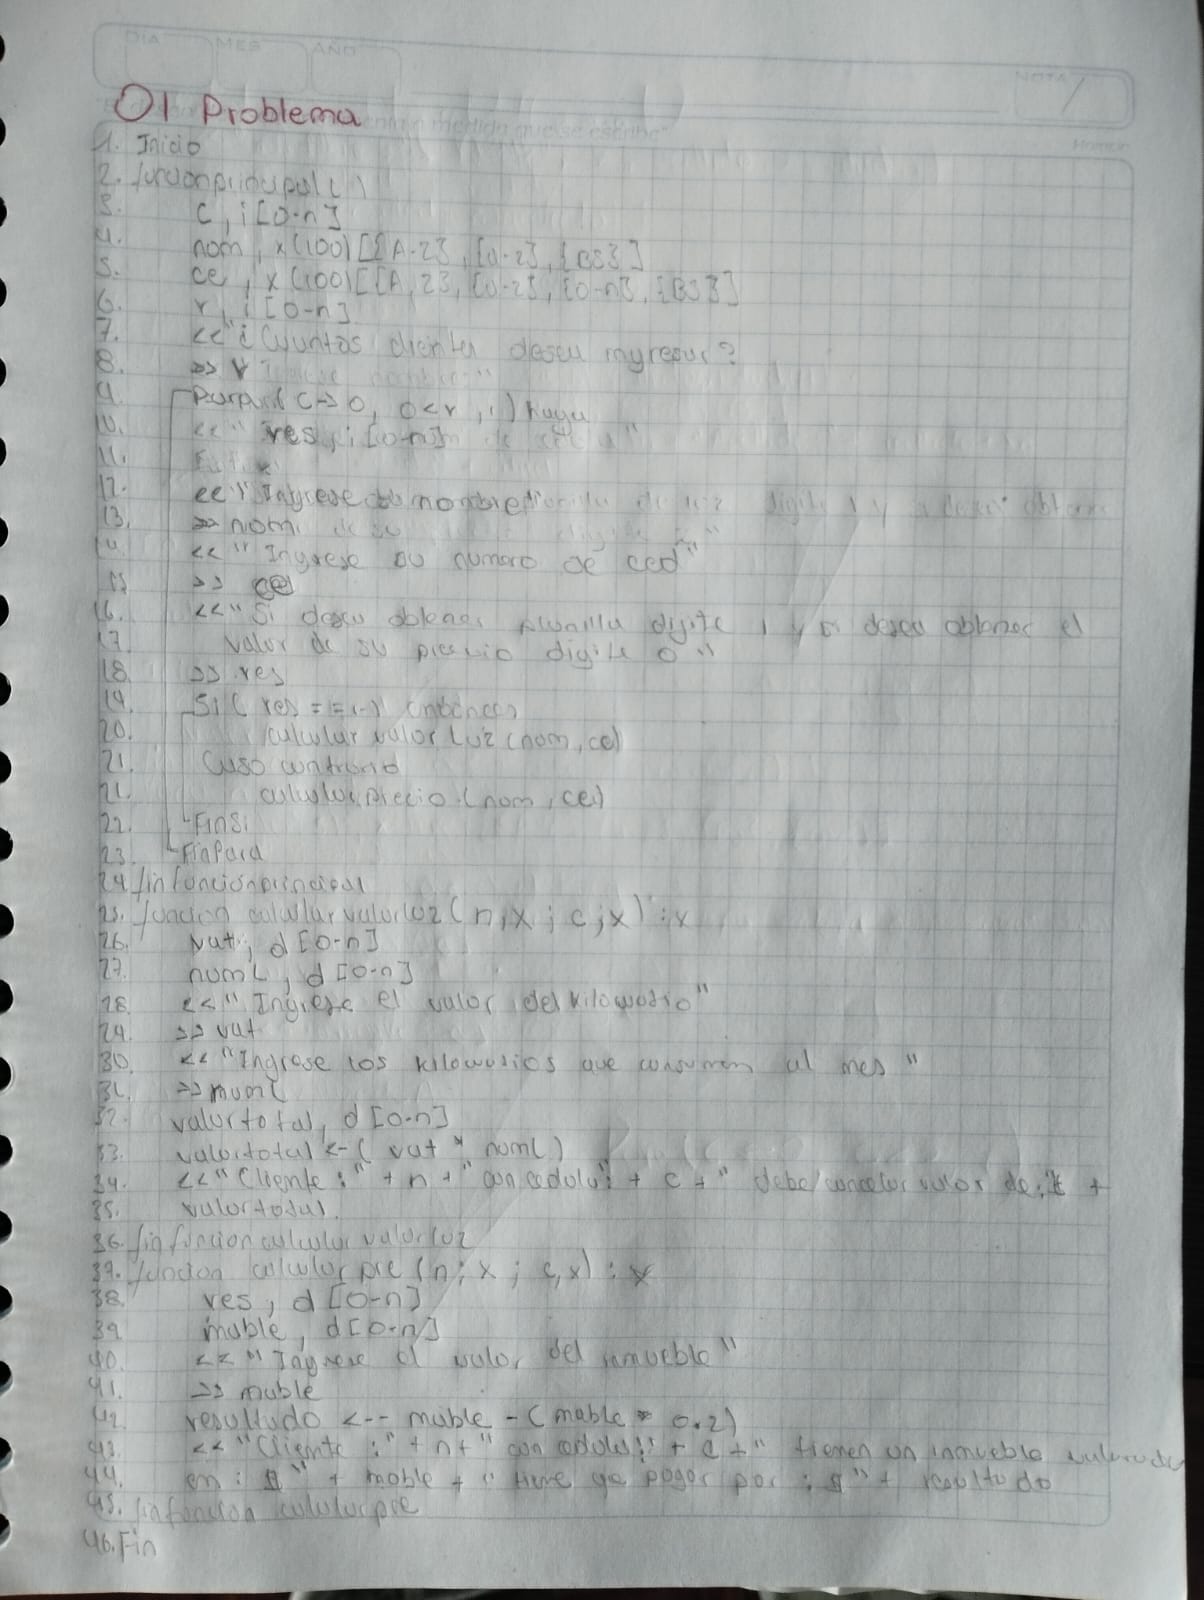 DIA MES AÑO
NOTA
01 Problema
1. Inicio
2. funcionprincipal ( )
3. c, i [0-n]
4. nom, x(100) [{A-Z}, {a-z}, {BS}]
5. ce, x(100) [{A,Z}, {a-z}, {0-n}, {BS}]
6. r, i [0-n]
7. << "¿Cuantos clientes desea ingresar?
8. >> r
9. Para ( c->0, 0<r, 1) haga
10. << " res, i [0-n]
11.
12. << " Ingrese su nombre
13. >> nom
14. << "Ingrese su numero de ced"
15. >> ce
16. <<" Si desea obtener planilla digite 1 y si desea obtener el
17. valor de su precio digite 0"
18. >> res
19. Si ( res == 1) entonces
20. calcular valor luz (nom, ce)
21. Caso contrario
21. calcular precio (nom, ce)
22. FinSi
23. FinPara
24. finfuncionprincipal
25. funcion calcularvalorluz ( n,x ; c;x) : x
26. vat, d [0-n]
27. numL, d [0-n]
28. <<" Ingrese el valor del kilowatio"
29. >> vat
30. << "Ingrese los kilowatios que consumen al mes "
31. >> numL
32. valortotal, d [0-n]
33. valortotal <- ( vat * numL)
34. << "Cliente :" + n + " con cedula" + c + " debe cancelar valor de: +
35. valortotal.
36. fin funcion calcular valorluz
37. funcion calcularpre (n; x ; c,x) : x
38. res, d [0-n]
39. muble, d [0-n]
40. << " Ingrese el valor del inmueble"
41. >> muble
42. resultado <-- muble - ( muble * 0.2)
43. << "Cliente :" + n + " con cedula:" + c + " tienen un inmueble valorado
44. en : $ " + muble + " tiene que pagar por : $ " + resultado
45. finfuncion calcularpre
46. Fin